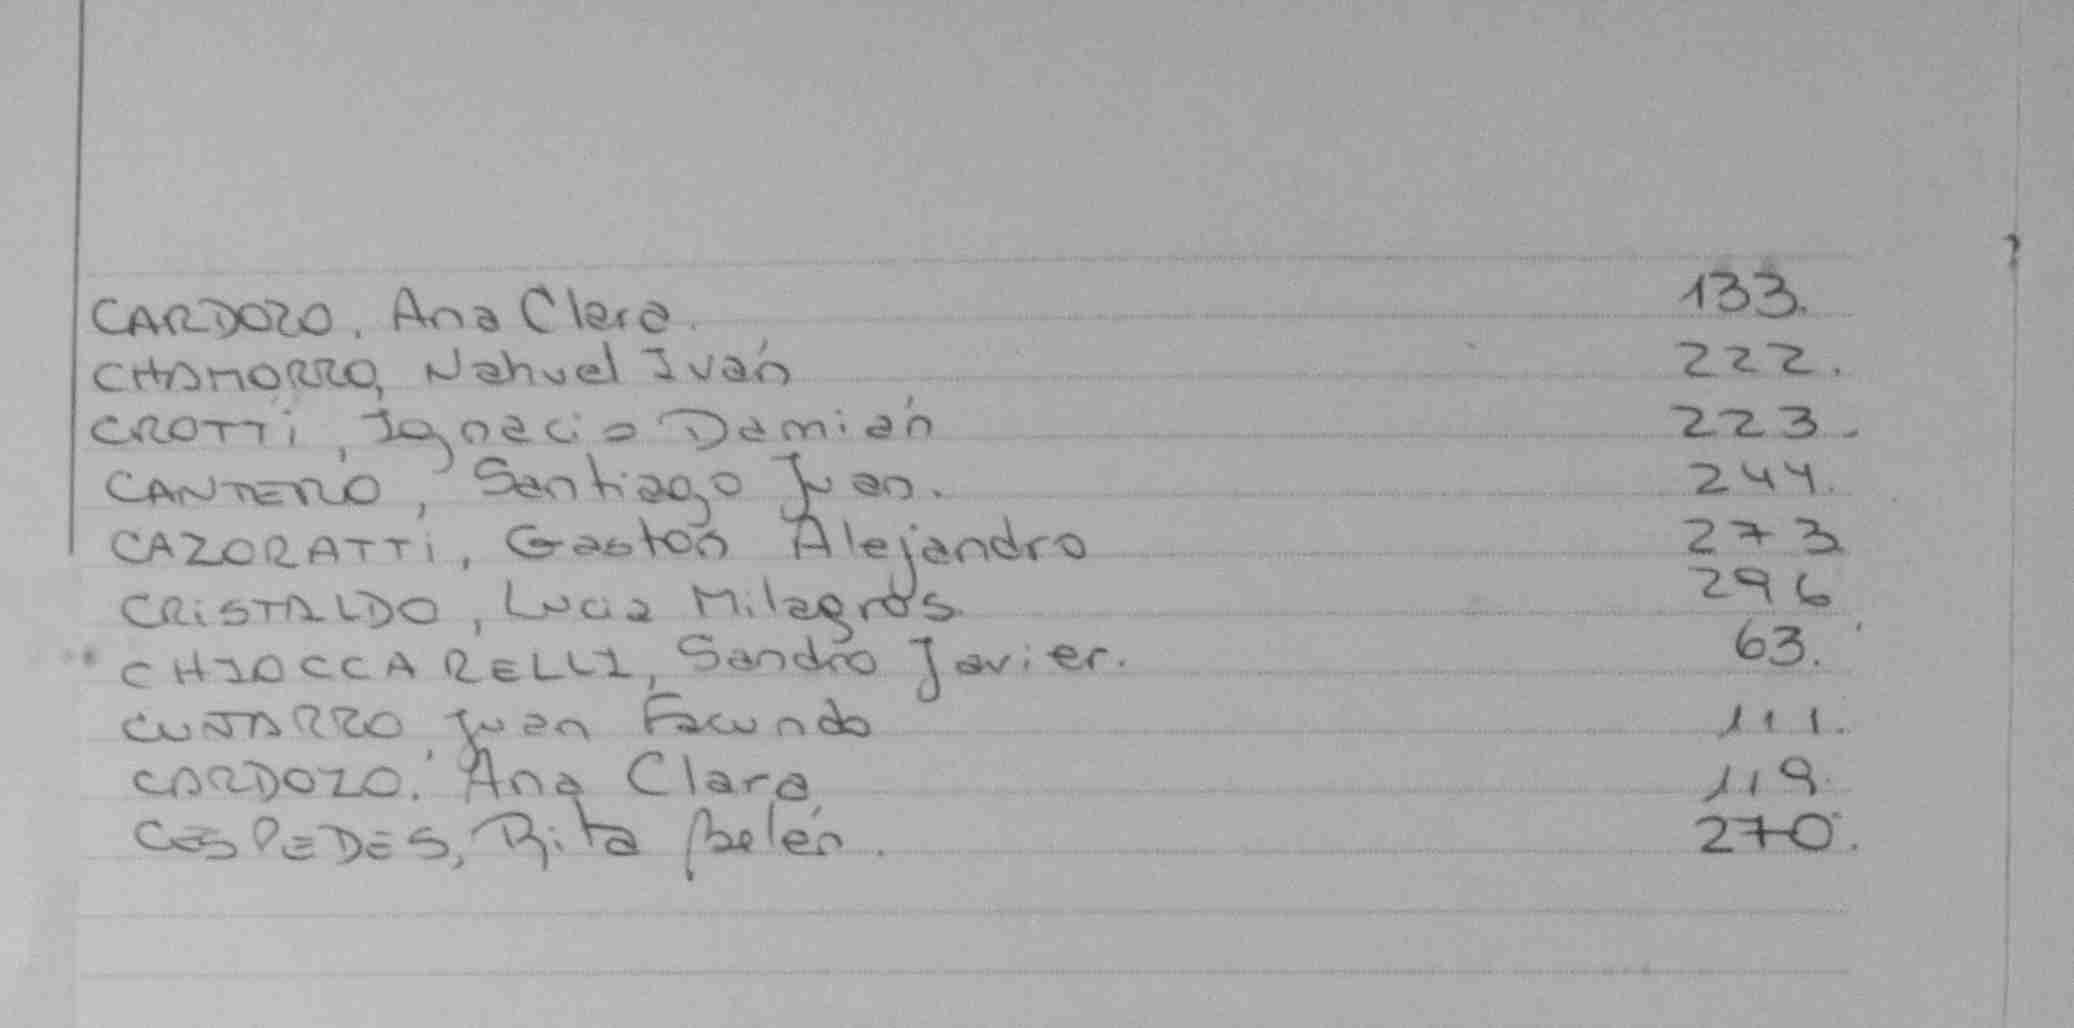 CARDOZO, Ana Clara. 133.
CHAMORRO, Nahuel Iván 222.
CROTTi, Ignacio Damián 223.
CANTERO, Santiago Juan. 244.
CAZORATTi, Gastón Alejandro 273
CRiSTALDO, Lucia Milagros 296
CHIOCCARELLI, Sandro Javier. 63.
Juan Facundo 111.
CARDOZO, Ana Clara 119.
CESPEDES, Rita Belén. 270.